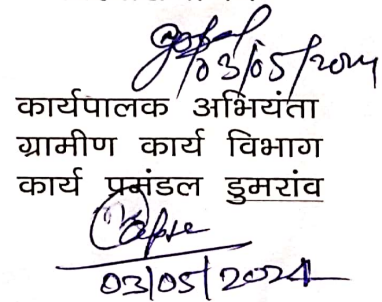 03/05/2024
कार्यपालक अभियंता
ग्रामीण कार्य विभाग
कार्य प्रमंडल डुमरांव
03/05/2024